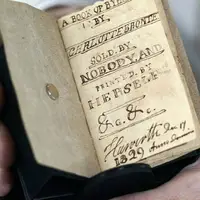 A BOOK OF RYMES
BY
CHARLOTTE BRONTE
SOLD BY
NOBODY AND
PRINTED BY
HERSELF
&c. &c.
Haworth Dec 17
1829 Anno Domini